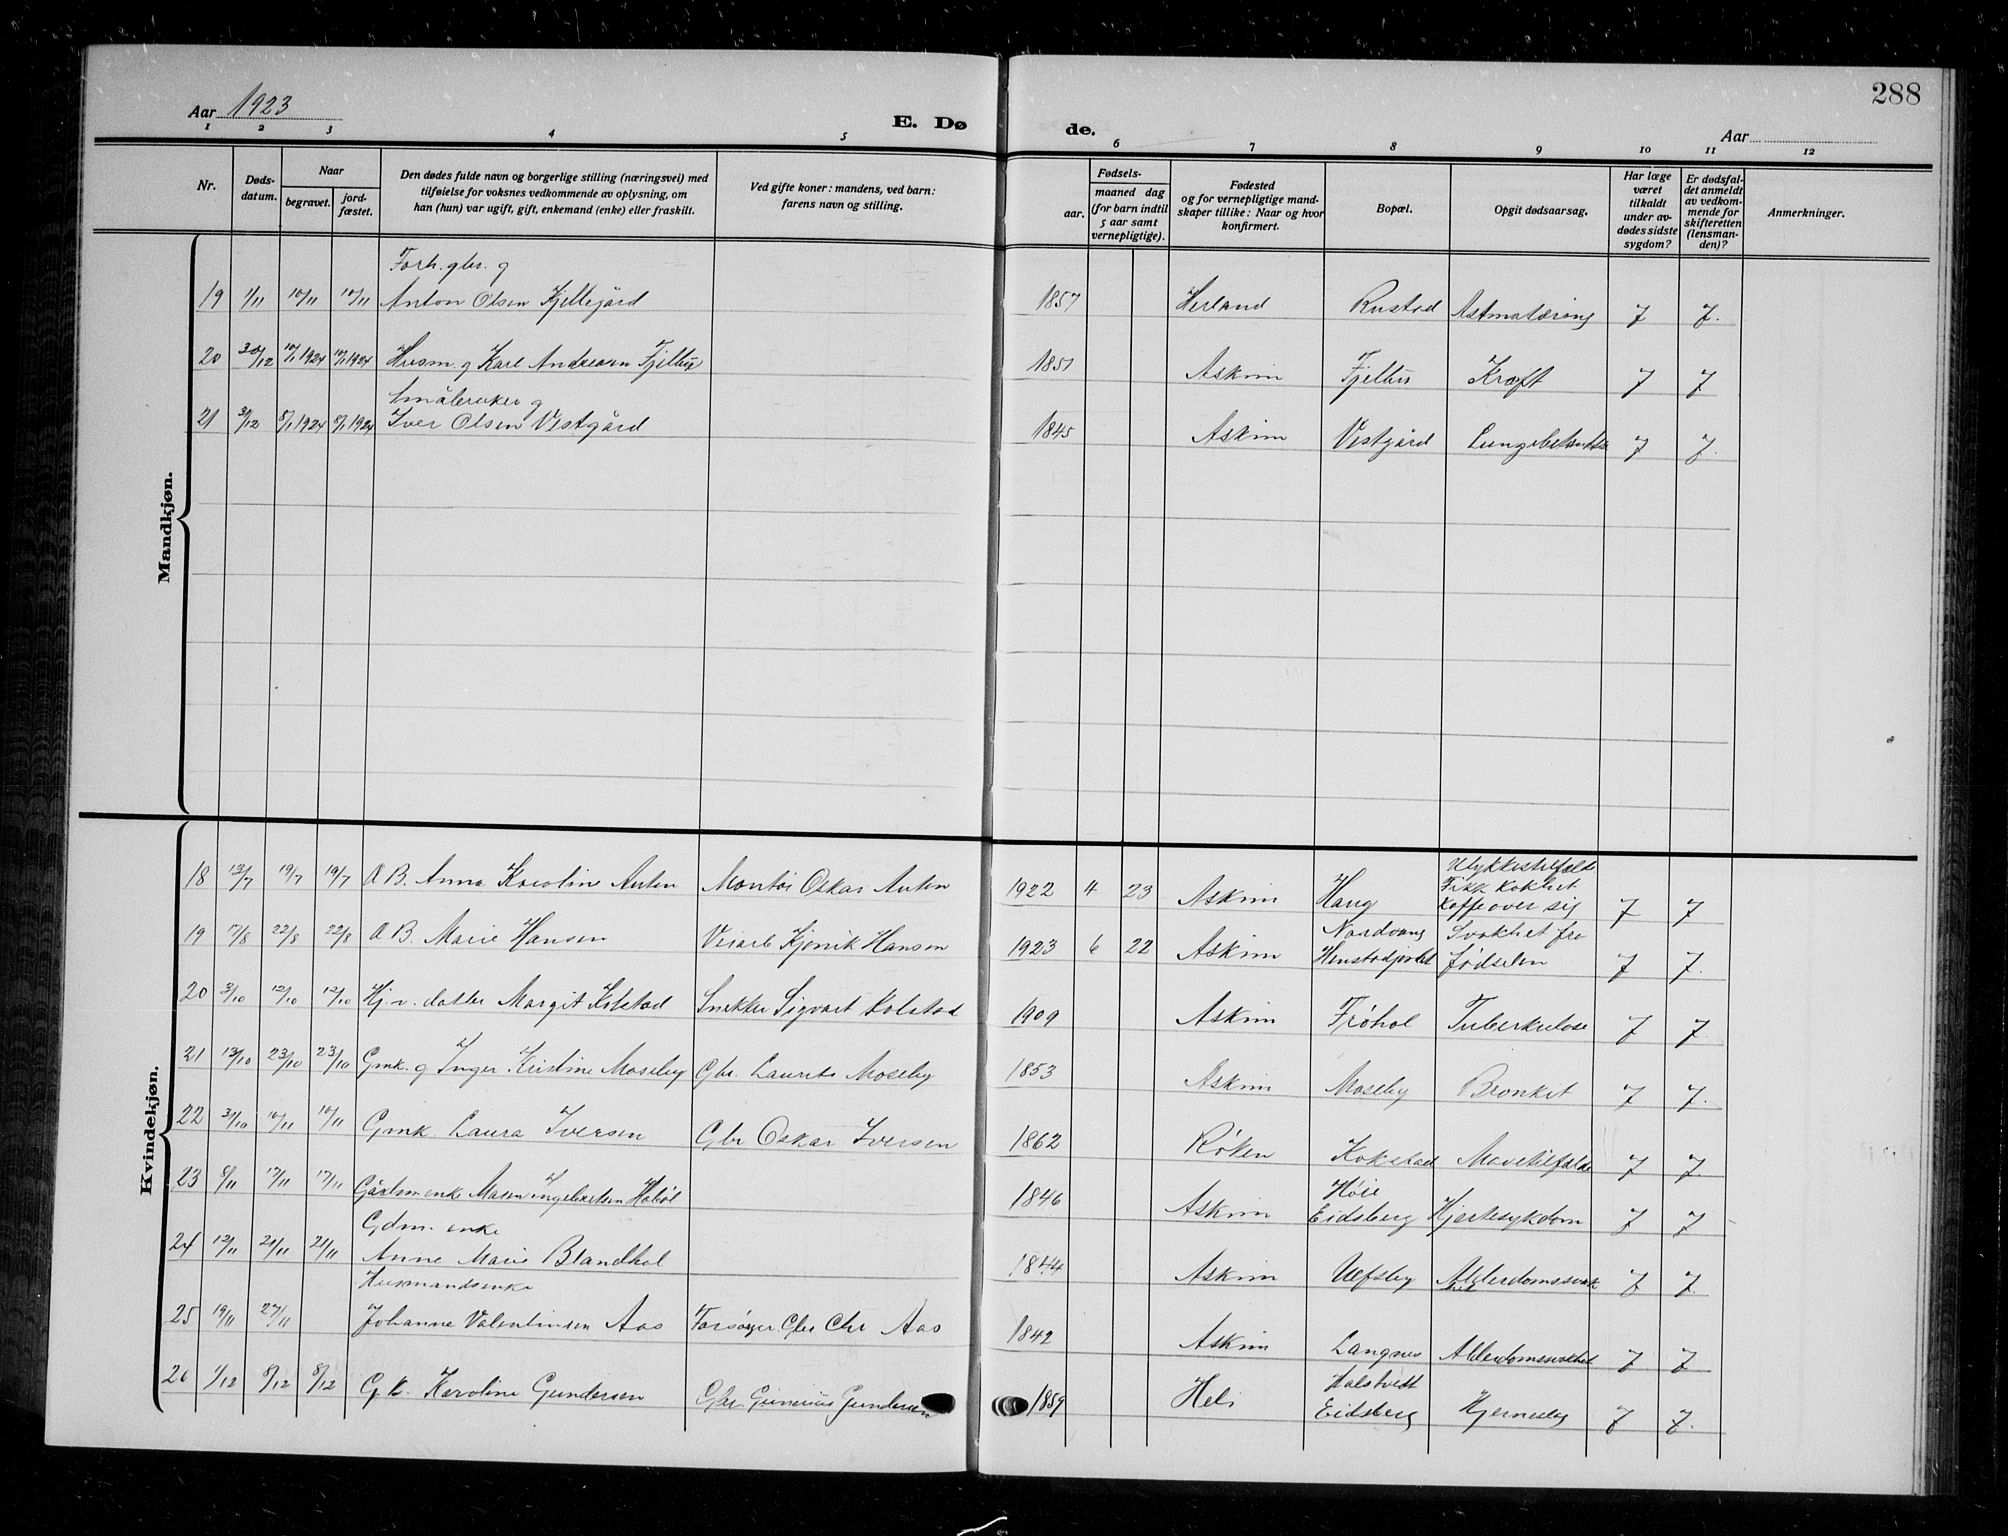 288
Aar 1923
E. Døde.
Aar
1 2 3 4 5 6 7 8 9 10 11 12
Nr.
Døds-datum.
Naar
begravet.
jord-fæstet.
Den dødes fulde navn og borgerlige stilling (næringsvei) med
tilføielse for voksnes vedkommende av oplysning, om
han (hun) var ugift, gift, enkemand (enke) eller fraskilt.
Ved gifte koner: mandens, ved barn:
farens navn og stilling.
aar.
Fødsels-
maaned dag
(for barn indtil
5 aar samt
vernepligtige).
Fødested
og for vernepligtige mand-
skaper tillike: Naar og hvor
konfirmert.
Bopæl.
Opgit dødsaarsag.
Har læge
været
tilkaldt
under av-
dødes sidste
sygdom?
Er dødsfal-
det anmeldt
av vedkom-
mende for
skifteretten
(lensman-
den)?
Anmerkninger.
Mandkjøn.
Forh. gbr. g
19 1/11 10/11 10/11 Anton Olsen Kjellegård 1857 Herland Rustad J J.
20 30/12 10/1 1924 10/1 1924 Husm. g Karl Andresen Fjellu 1851 Askim Kræft J J
Småbruker g
21 8/1 1924 8/1 1924 Iver Olsen Vestgård 1845 Askim Vestgård J J.
Kvindekjøn.
Ulykkestilfælde
18 13/7 19/7 19/7 A B. Anna Karoline Anten Montør Oskar Anten 1922 4 23 Askim Haug Fikk kokhet
kaffe over sig J J
19 17/8 22/8 22/8 A B. Marie Hansen Hansen 1923 6 22 Askim Svakhet fra
fødselen J J.
20 3/10 12/10 12/10 Hj.v. datter Margit Kolstad Snekker Sigvart Kolstad 1909 Askim Frøhol Tuberkulose J J.
21 13/10 23/10 23/10 Gmk. g Inger Kristine Moseby Gbr. Laurits Moseby 1853 Askim Moseby Bronkit J J.
22 31/10 10/11 10/11 Gmk. Laura Iversen Gbr Oskar Iversen 1862 Røken Kokstad Mavetilfælde J J.
23 8/11 17/11 17/11 enke Maren Ingebretsen Habøl 1846 Askim Høie
Eidsberg Hjertesykdom J J
Gdm. enke
24 12/11 21/11 21/11 Anne Marie Brandhol 1844 Askim Ulfsby Alderdomssvak
het J J.
Husmandsenke
25 19/11 27/11 Johanne Valentinsen Aas Forsørger Gbr Chr Aas 1842 Askim Langnes Alderdomssvakhet J J
26 1/12 8/12 8/12 G.k. Karoline Gundersen Gbr. Gunerius Gundersen 1859 Heli
Eidsberg J J.